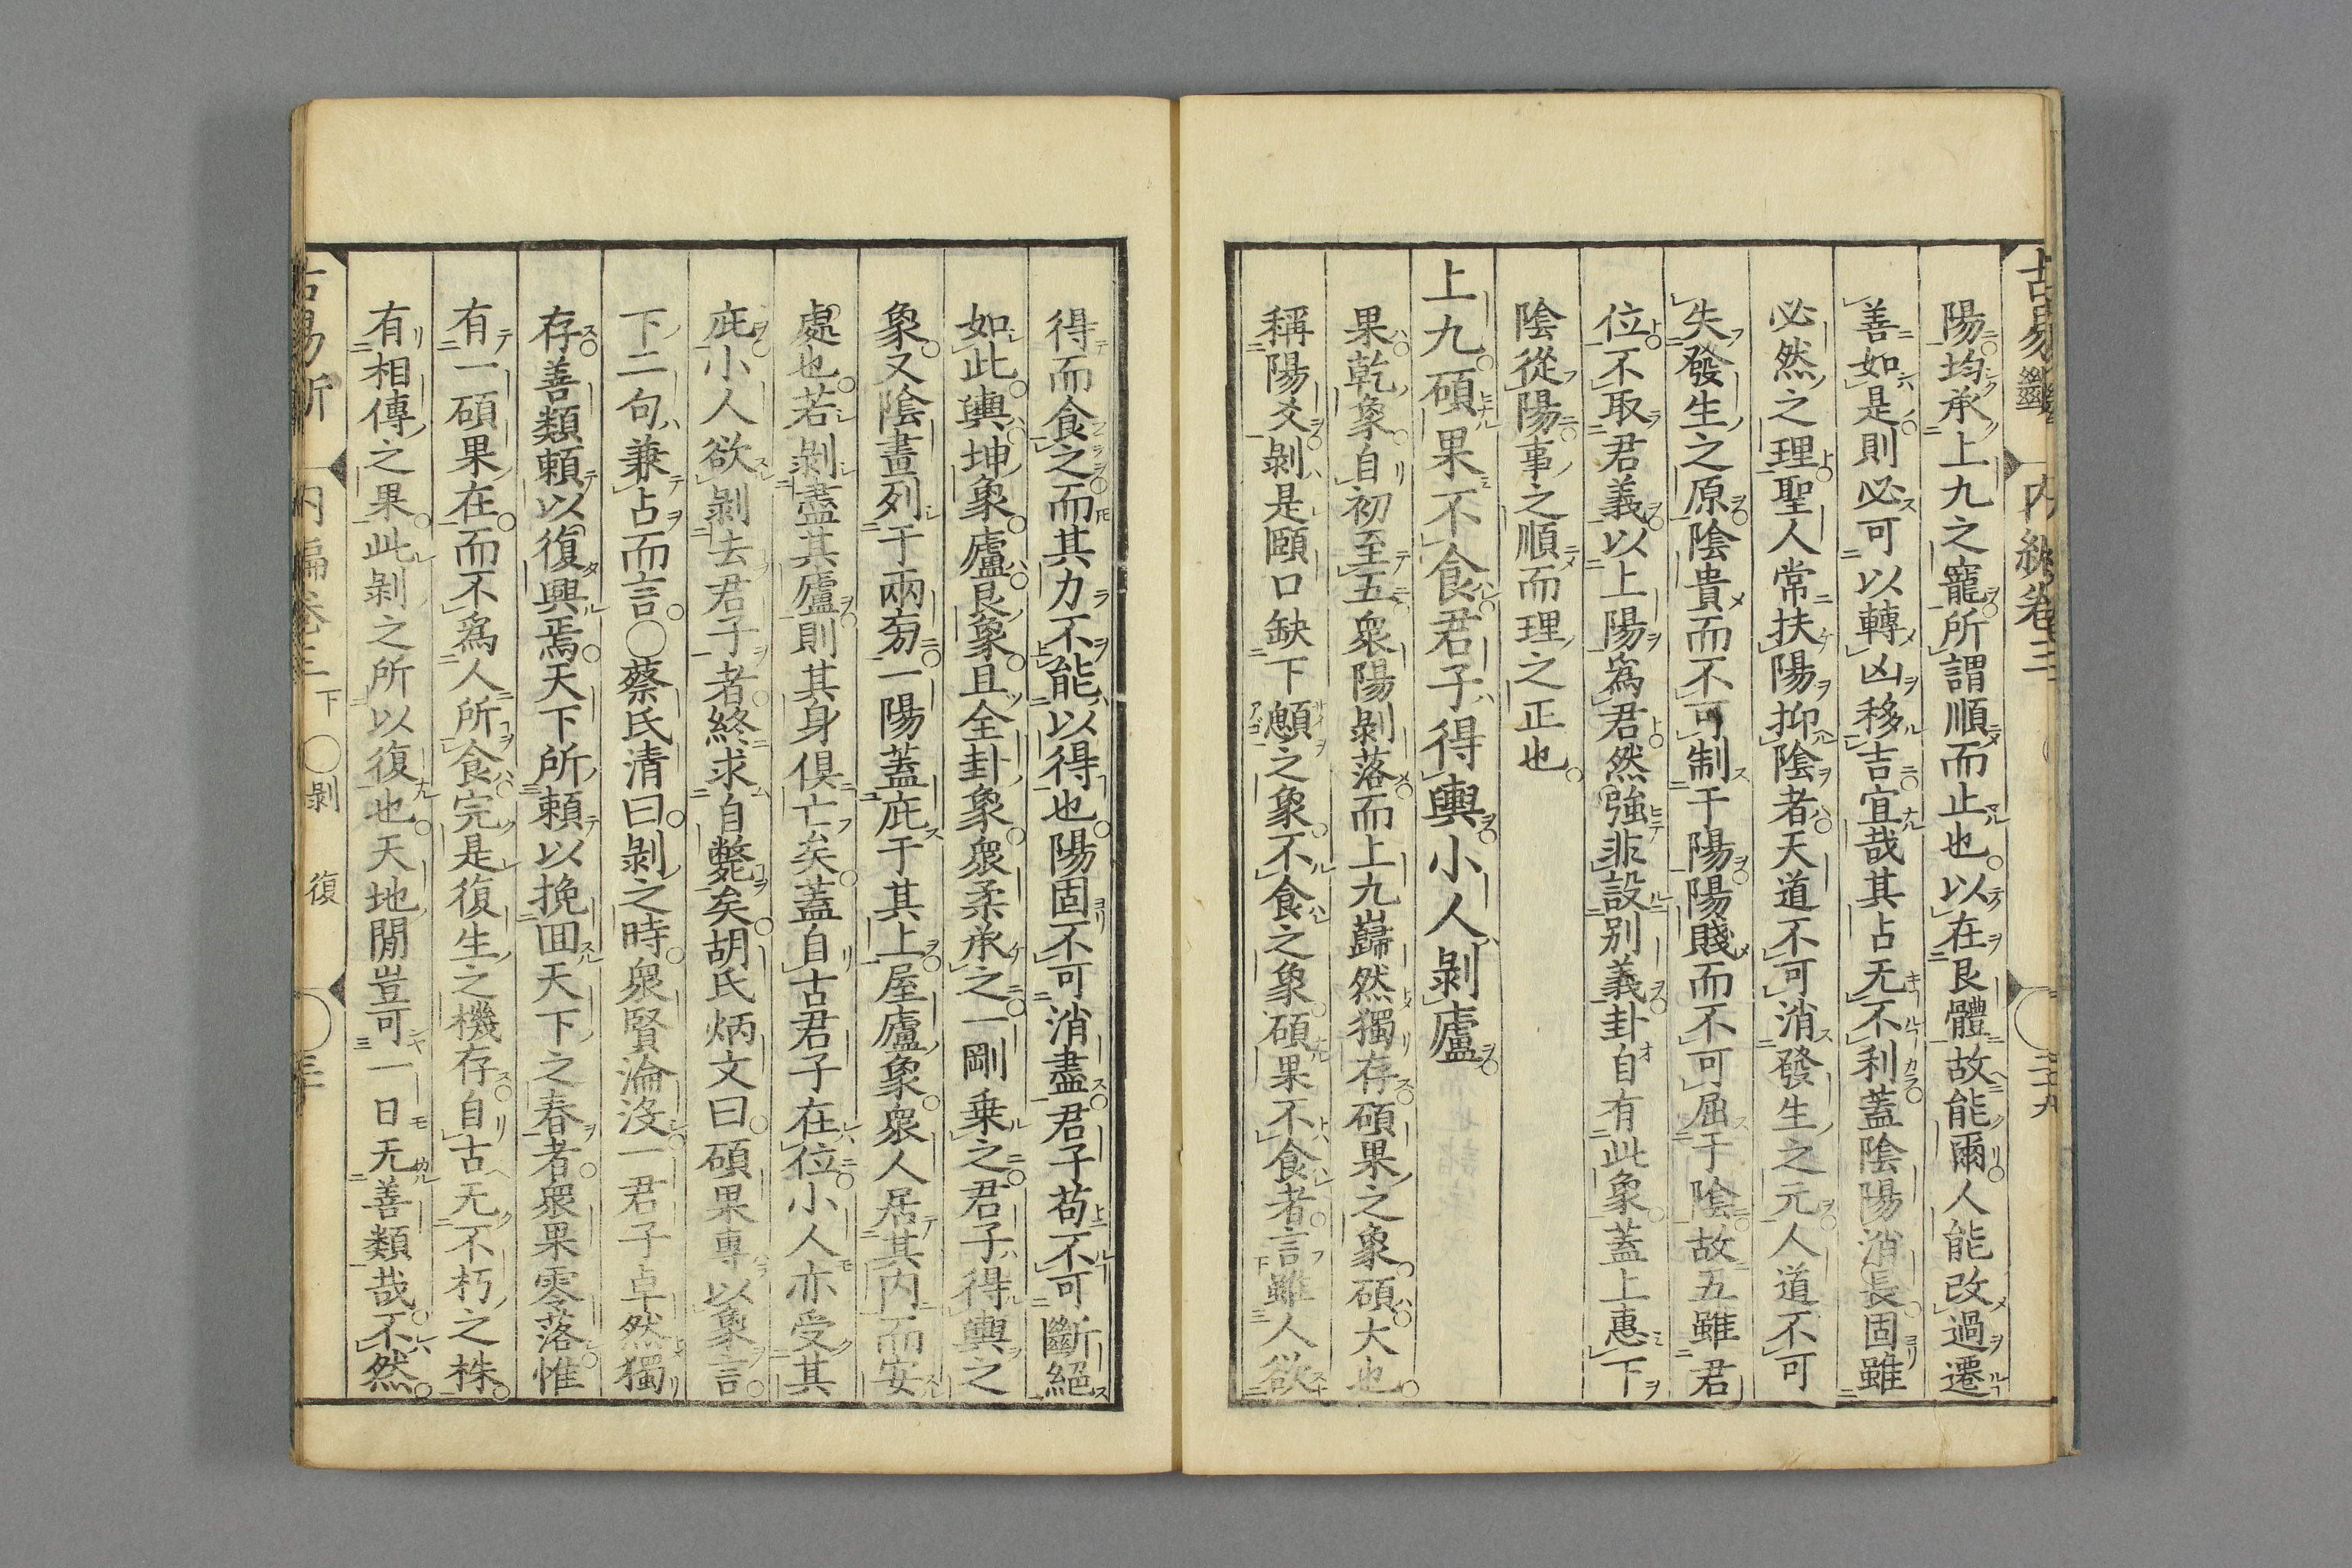 陽均承上九之寵所謂順而止也以在艮體故能爾人能改過遷
善如是則必可以轉凶移吉宜哉其占无不利蓋陰陽消長固雖
必然之理聖人常扶陽抑陰者天道不可消發生之元人道不可
失發生之原陰貴而不可制于陽陽賤而不可屈于陰故五雖君
位不取君義以上陽爲君然強非設別義卦自有此象蓋上惠下
陰從陽事之順而理之正也
上九碩果不食君子得輿小人剝廬
果乾象自初至五衆陽剝落而上九巋然獨存碩果之象碩大也
稱陽爻剝是頤口缺下之象不食之象碩果不食者言雖人欲
得而食之而其力不能以得也陽固不可消盡君子苟不可斷絕
如此輿坤象廬艮象且全卦象衆柔承之一剛乗之君子得輿之
象又陰畫列于兩旁一陽蓋庇于其上屋廬象衆人居其内而安
處也若剝盡其廬則其身俱亡矣蓋自古君子在位小人亦受其
庇小人欲剝去君子者終求自斃矣胡氏炳文曰碩果專以象言
下二句兼占而言〇蔡氏清曰剝之時衆賢淪没一君子卓然獨
存善類頼以復興焉天下所頼以挽回天下之春者衆果零落惟
有一碩果在而不爲人所食完是復生之機存自古无不朽之株
有相傳之果此剝之所以復也天地閒豈可一日无善類哉不然
内編卷三 下 〇剝 復